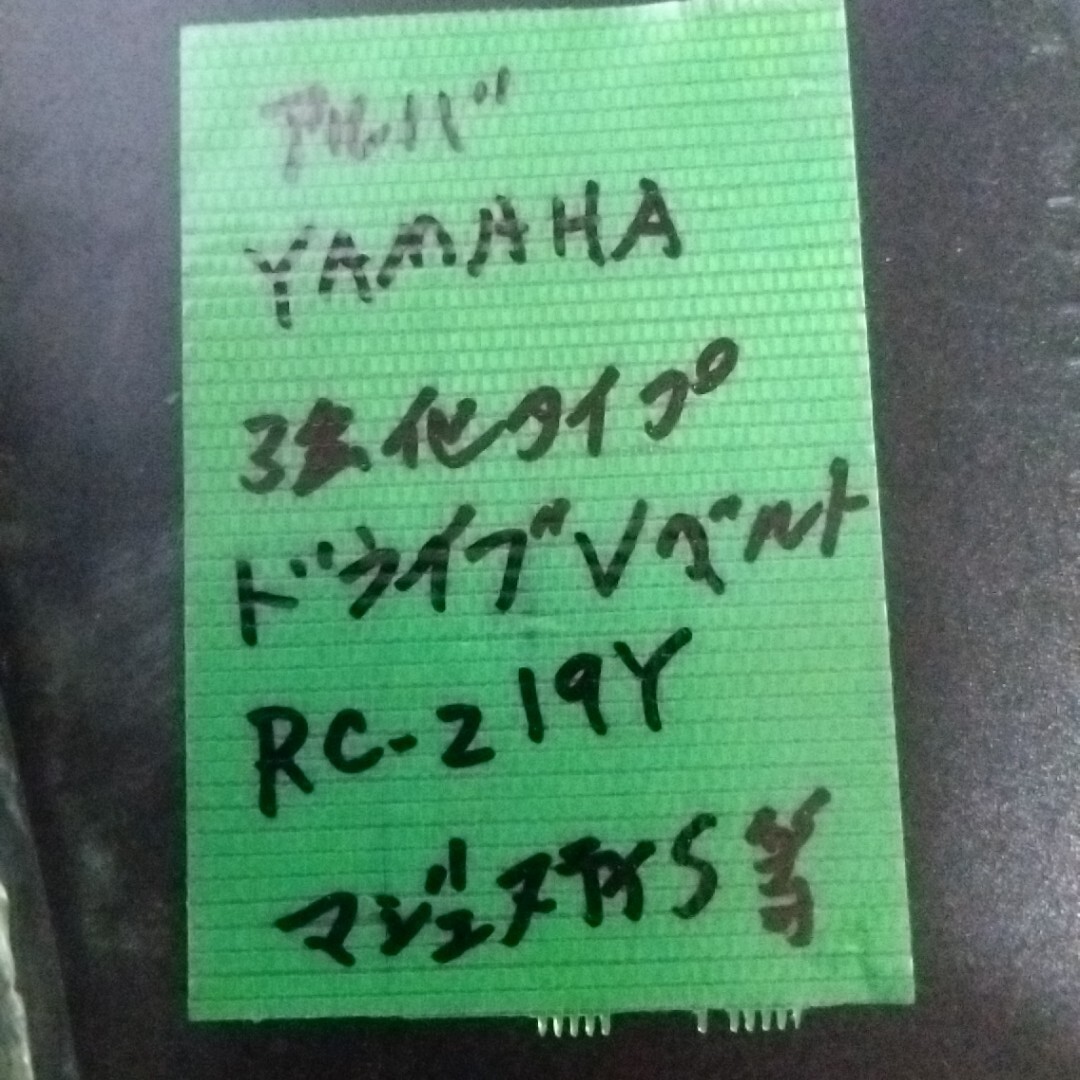 アルバ
YAMAHA
強化タイプ
ドライブVベルト
RC-219Y
マジェスティS等